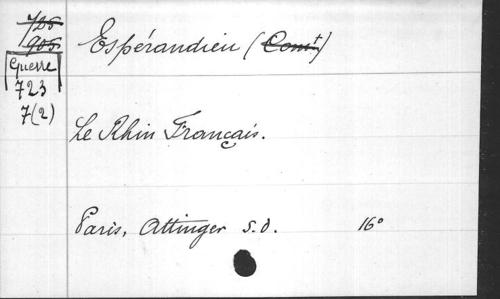 725
905
Guerre
723
7(2)
Espérandieu (Comt)
Le Rhin Français.
Paris, Attinger s.d. 16°